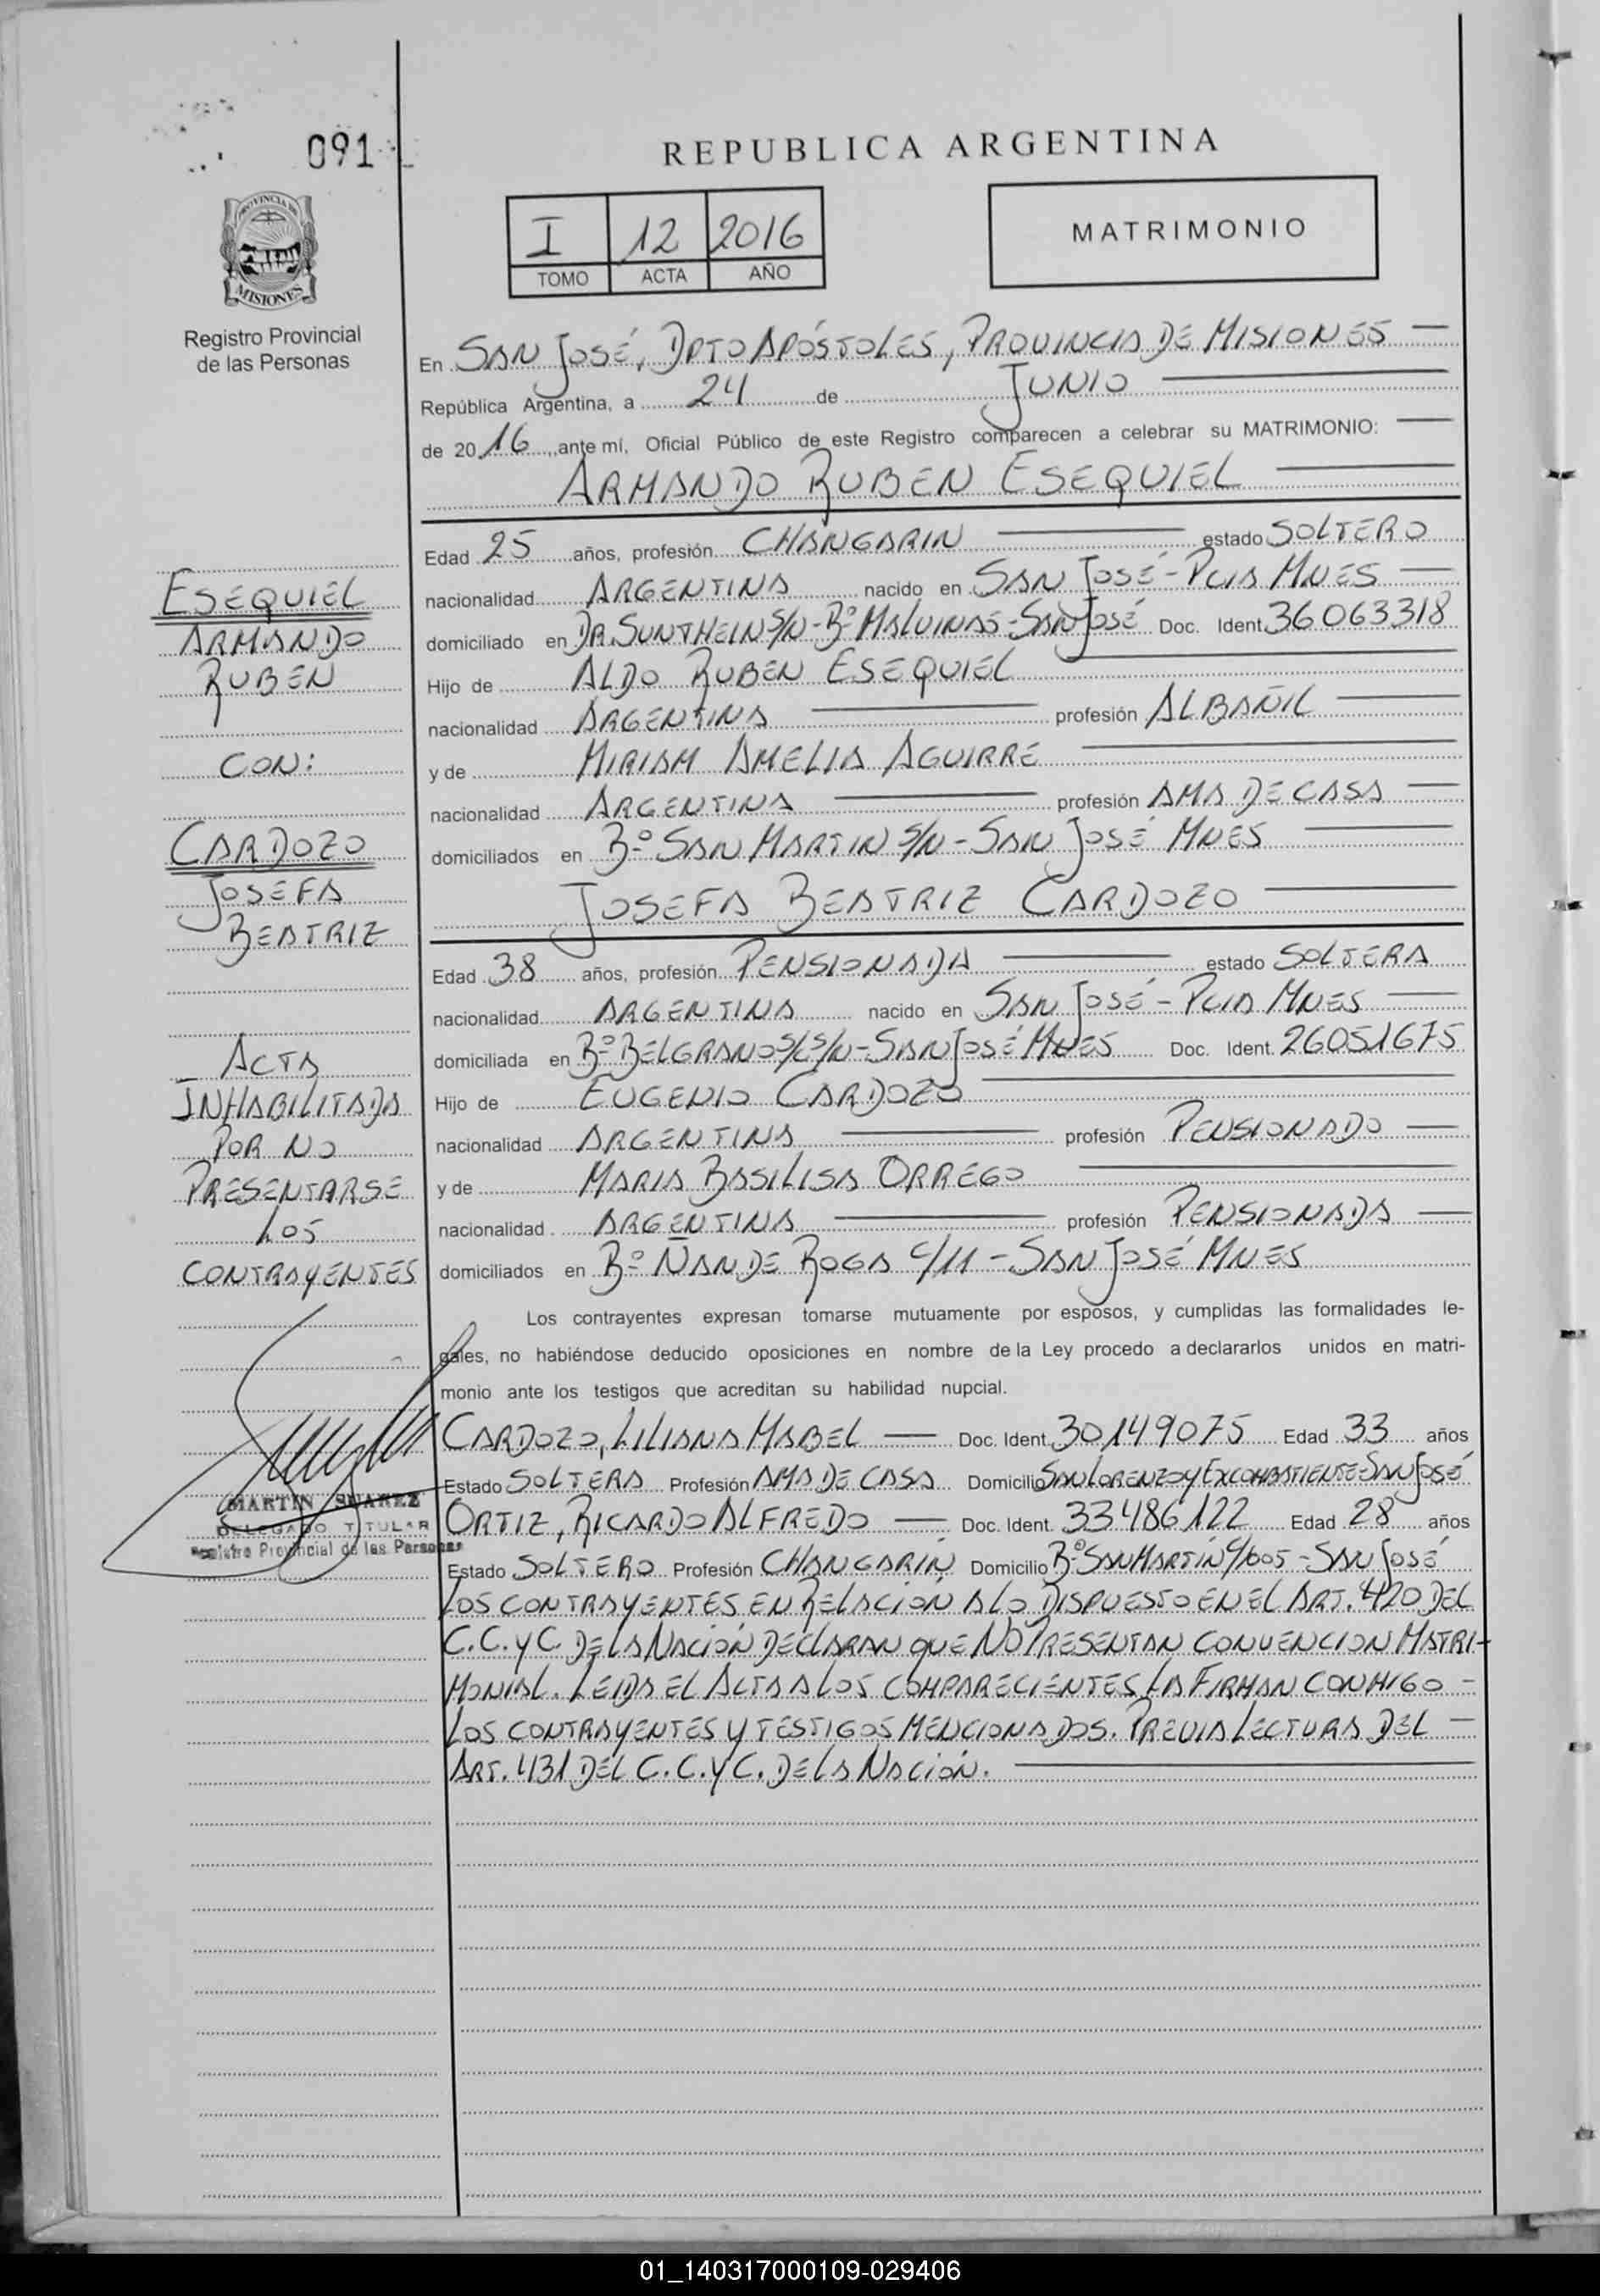 091
REPUBLICA ARGENTINA
I 12 2016
TOMO ACTA AÑO
MATRIMONIO
PROVINCIA DE
MISIONES
Registro Provincial
de las Personas
En SAN JOSÉ, DPTO APÓSTOLES, PROVINCIA DE MISIONES
República Argentina, a 24 de JUNIO
de 2016, ante mí, Oficial Público de este Registro comparecen a celebrar su MATRIMONIO:
ARMANDO RUBEN ESEQUIEL
Edad 25 años, profesión CHANGARIN estado SOLTERO
nacionalidad ARGENTINA nacido en SAN JOSÉ - PCIA MNES
domiciliado en DR. SUNTHEIN S/N - Bº MALVINAS - SAN JOSÉ Doc. Ident 36063318
Hijo de ALDO RUBEN ESEQUIEL
nacionalidad ARGENTINA profesión ALBAÑIL
y de MIRIAM AMELIA AGUIRRE
nacionalidad ARGENTINA profesión AMA DE CASA
domiciliados en Bº SAN MARTIN S/N - SAN JOSÉ MNES
JOSEFA BEATRIZ CARDOZO
Edad 38 años, profesión PENSIONADA estado SOLTERA
nacionalidad ARGENTINA nacido en SAN JOSÉ - PCIA MNES
domiciliada en Bº BELGRANO S/C S/N - SAN JOSÉ MNES Doc. Ident. 26051675
Hijo de EUGENIO CARDOZO
nacionalidad ARGENTINA profesión PENSIONADO
y de MARIA BASILISA ORREGO
nacionalidad ARGENTINA profesión PENSIONADA
domiciliados en Bº ÑANDE ROGA C/11 - SAN JOSÉ MNES
Los contrayentes expresan tomarse mutuamente por esposos, y cumplidas las formalidades le-
gales, no habiéndose deducido oposiciones en nombre de la Ley procedo a declararlos unidos en matri-
monio ante los testigos que acreditan su habilidad nupcial.
CARDOZO, LILIANA MABEL Doc. Ident. 30149075 Edad 33 años
Estado SOLTERA Profesión AMA DE CASA Domicilio SAN LORENZO Y EXCOMBATIENTE SAN JOSÉ
ORTIZ, RICARDO ALFREDO Doc. Ident. 33486122 Edad 28 años
Estado SOLTERO Profesión CHANGARIN Domicilio Bº SAN MARTIN - SAN JOSÉ
LOS CONTRAYENTES EN RELACIÓN A LO DISPUESTO EN EL ART. 420 DEL
C.C. Y C. DE LA NACIÓN DECLARAN QUE NO PRESENTAN CONVENCION MATRI-
MONIAL. LEIDA EL ACTA A LOS COMPARECIENTES LA FIRMAN CONMIGO -
LOS CONTRAYENTES Y TESTIGOS MENCIONADOS. PREVIA LECTURA DEL -
ART. 431 DEL C.C. Y C. DE LA NACIÓN.
ESEQUIEL
ARMANDO
RUBEN
CON:
CARDOZO
JOSEFA
BEATRIZ
ACTA
INHABILITADA
POR NO
PRESENTARSE
LOS
CONTRAYENTES
MARTIN SUAREZ
DELEGADO TITULAR
Registro Provincial de las Personas
01_140317000109-029406